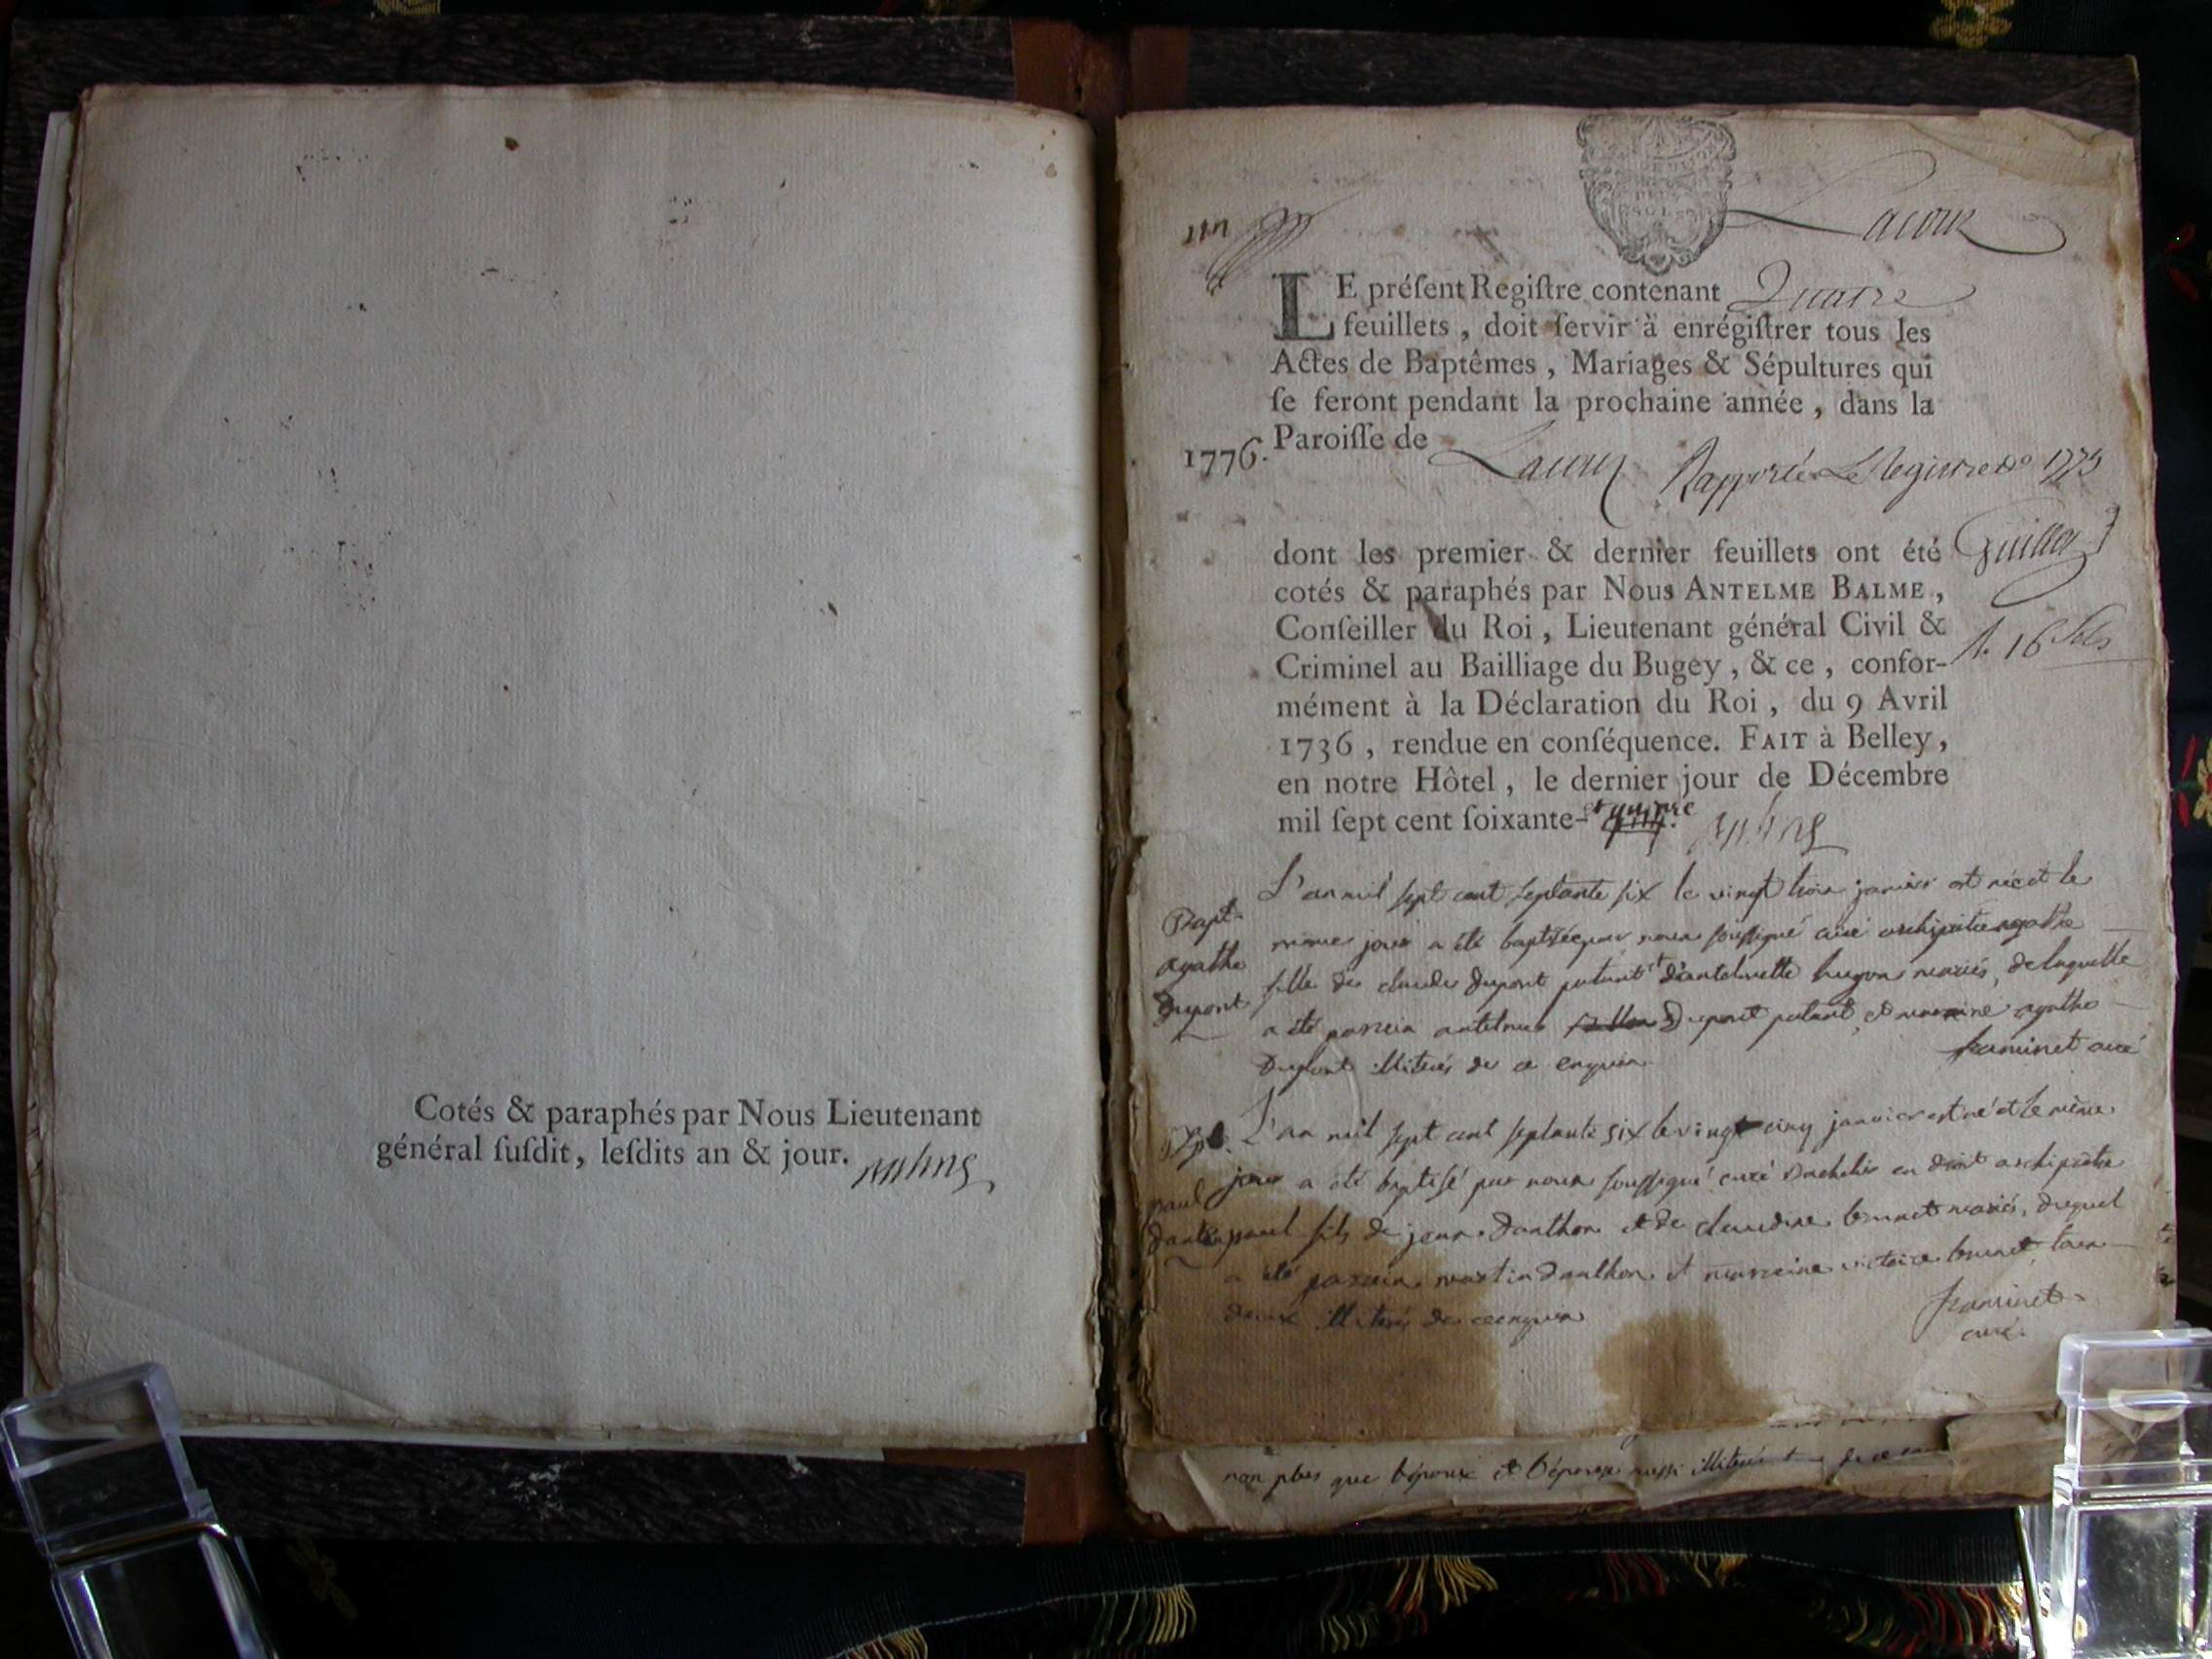 Cotés & paraphés par Nous Lieutenant
général ſuſdit, leſdits an & jour.
un
LE préſent Regiſtre contenant Quatre
feuillets, doit ſervir à enrégiſtrer tous les
Actes de Baptêmes, Mariages & Sépultures qui
ſe feront pendant la prochaine année, dans la
1776. Paroiſſe de
Rapporté Le Registre de 1775
dont les premier & dernier feuillets ont été
cotés & paraphés par Nous ANTELME BALME,
Conſeiller du Roi, Lieutenant général Civil &
Criminel au Bailliage du Bugey, & ce, confor-
mément à la Déclaration du Roi, du 9 Avril
1736, rendue en conſéquence. FAIT à Belley,
en notre Hôtel, le dernier jour de Décembre
mil ſept cent ſoixante- et quinze
Bapt.
agathe
Dupont
L'an mil sept cent septante six le vingt trois janvier est née et le
même jour a été baptisée par nous soussigné curé archiprêtre agathe
fille de claude dupont putunt et d'antelmette hugon mariés, de laquelle
a été parrain antelme Dupont putunt, et marraine agathe
Dupont illiterés de ce enquis.
curé
paul
danthon
L'an mil sept cent septante six le vingt cinq janvier est né et le même
jour a été baptisé par nous soussigné curé Bachelier en droit archiprêtre
paul fils de jean danthon et de claudine brunet mariés, duquel
a été parrain martin danthon et marraine victoire brunet, tous
deux illiterés de ce enquis
curé.
non plus que l'époux et l'épouse aussi illiterés de ce